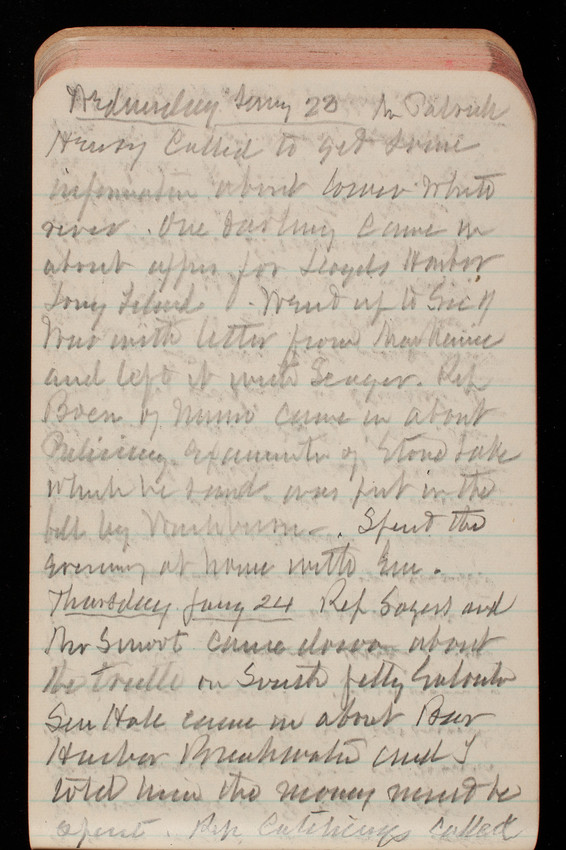 Wednesday Jany 23 Mr Patrick
Henry Called to get some
information about lower White
river. One Darling came in
about appn for Lloyds Harbor
Long Island. Went up to Sec of
War with letter from Mac Kenzie
and left it with Seager. Rep
Boen of Minn came in about
Preliminary Examinatn of Stone Lake
which he said was put in the
bill by Washburn. Spent the
evening at home with Em.
Thursday Jany 24 Rep Sayers and
Mr Smoot came down about
the trestle on South jetty Galvestn
Sen Hale came in about Bar
Harbor Breakwater and I
told him the money must be
spent. Rep Catchings called